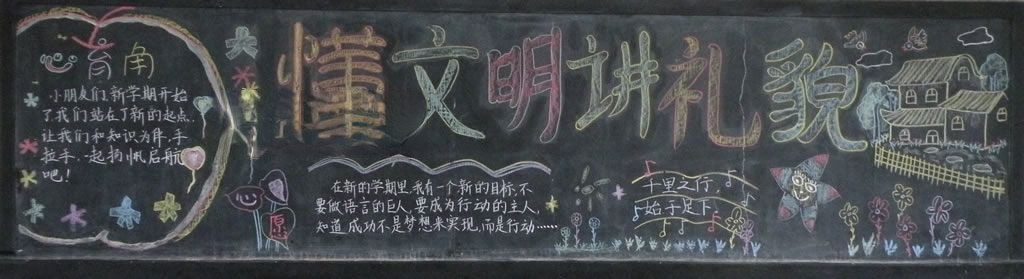 懂文明讲礼貌
育角
小朋友们,新学期开始
了我们站在了新的起点,
让我们和知识为伴,手
拉手,一起扬帆启航
吧!
愿
在新的学期里,我有一个新的目标,不
要做语言的巨人,要成为行动的主人,
知道,成功不是梦想来实现,而是行动……
千里之行,
始于足下